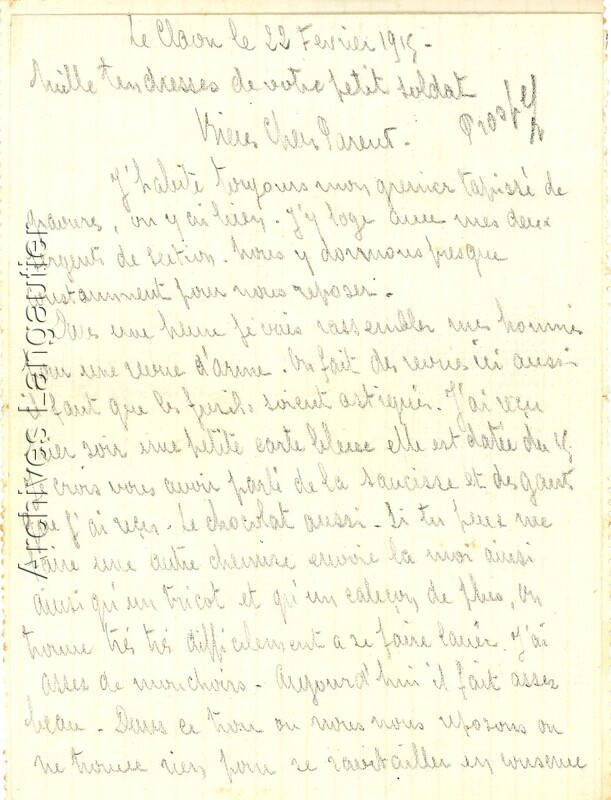 Le Claon le 22 Fevrier 1915 -
Mille tendresses de votre petit soldat
Biens Chers Parent -
J'habite toujours mon grenier tapissé de
gravures, on y ai bien. J'y loge avec mes deux
sergents de section. Nous y dormons presque
constamment pour nous reposer.
Dans une heure je vais rassembler mes hommes
pour une revue d'arme. On fait des revues ici aussi
il faut que les fusils soient astiqués. J'ai reçu
hier soir une petite carte bleue elle est datée du 15
crois vous avoir parlé de la saucisse et des gants
que j'ai reçu. Le chocolat aussi. Si tu peux me
faire une autre chemise envoie la moi ainsi
ainsi qu'un tricot et qu'un caleçon de plus, on
trouve trés trés difficilement a se faire laver. J'ai
asses de mouchoirs. Aujourd'hui il fait assez
beau. Dans ce trou ou nous nous reposons on
ne trouve rien pour se ravitailler en conserve
Archives Langautier